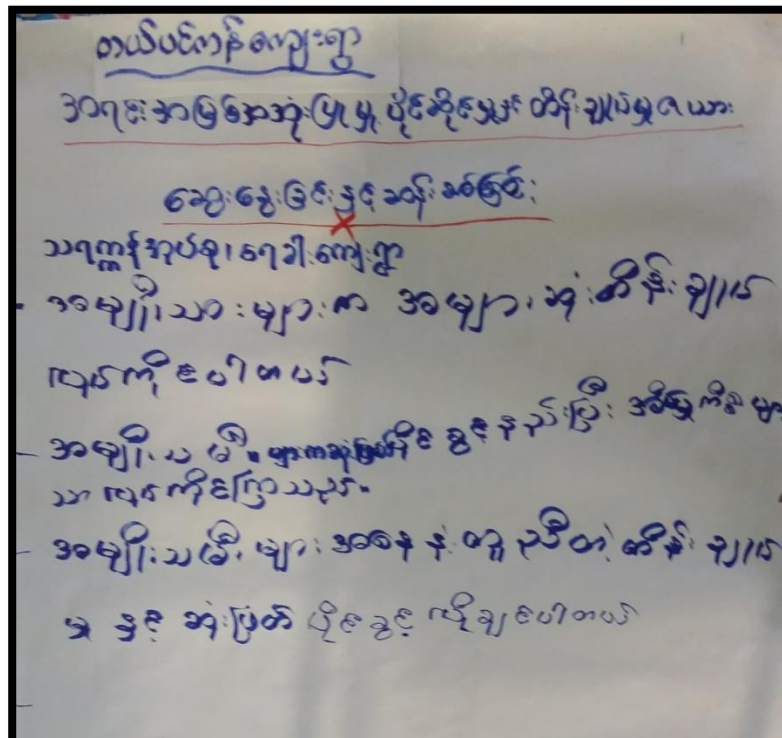 တယ်ပင်ကန်ကျေးရွာ
အရင်းအမြစ်အသုံးပြုမှု ပိုင်ဆိုင်မှုနှင့် ထိန်းချုပ်မှုဇယား
ဆွေးနွေးခြင်းနှင့်ဆန်းစစ်ခြင်း
သရက္ကန်အုပ်စု၊ ရေခါးကျေးရွာ
အမျိုးသားများက အများဆုံးထိန်းချုပ်
လုပ်ကိုင်ပါတယ်
- အမျိုးသမီးများကဆုံးဖြတ်ပိုင်ခွင့်နည်းပြီး အိမ်မှုကိစ္စများ
သာ လုပ်ကိုင်ကြသည်။
- အမျိုးသမီးများအနေနဲ့ တူညီတဲ့ထိန်းချုပ်
မှုနှင့် ဆုံးဖြတ်ပိုင်ခွင့် လိုချင်ပါတယ်